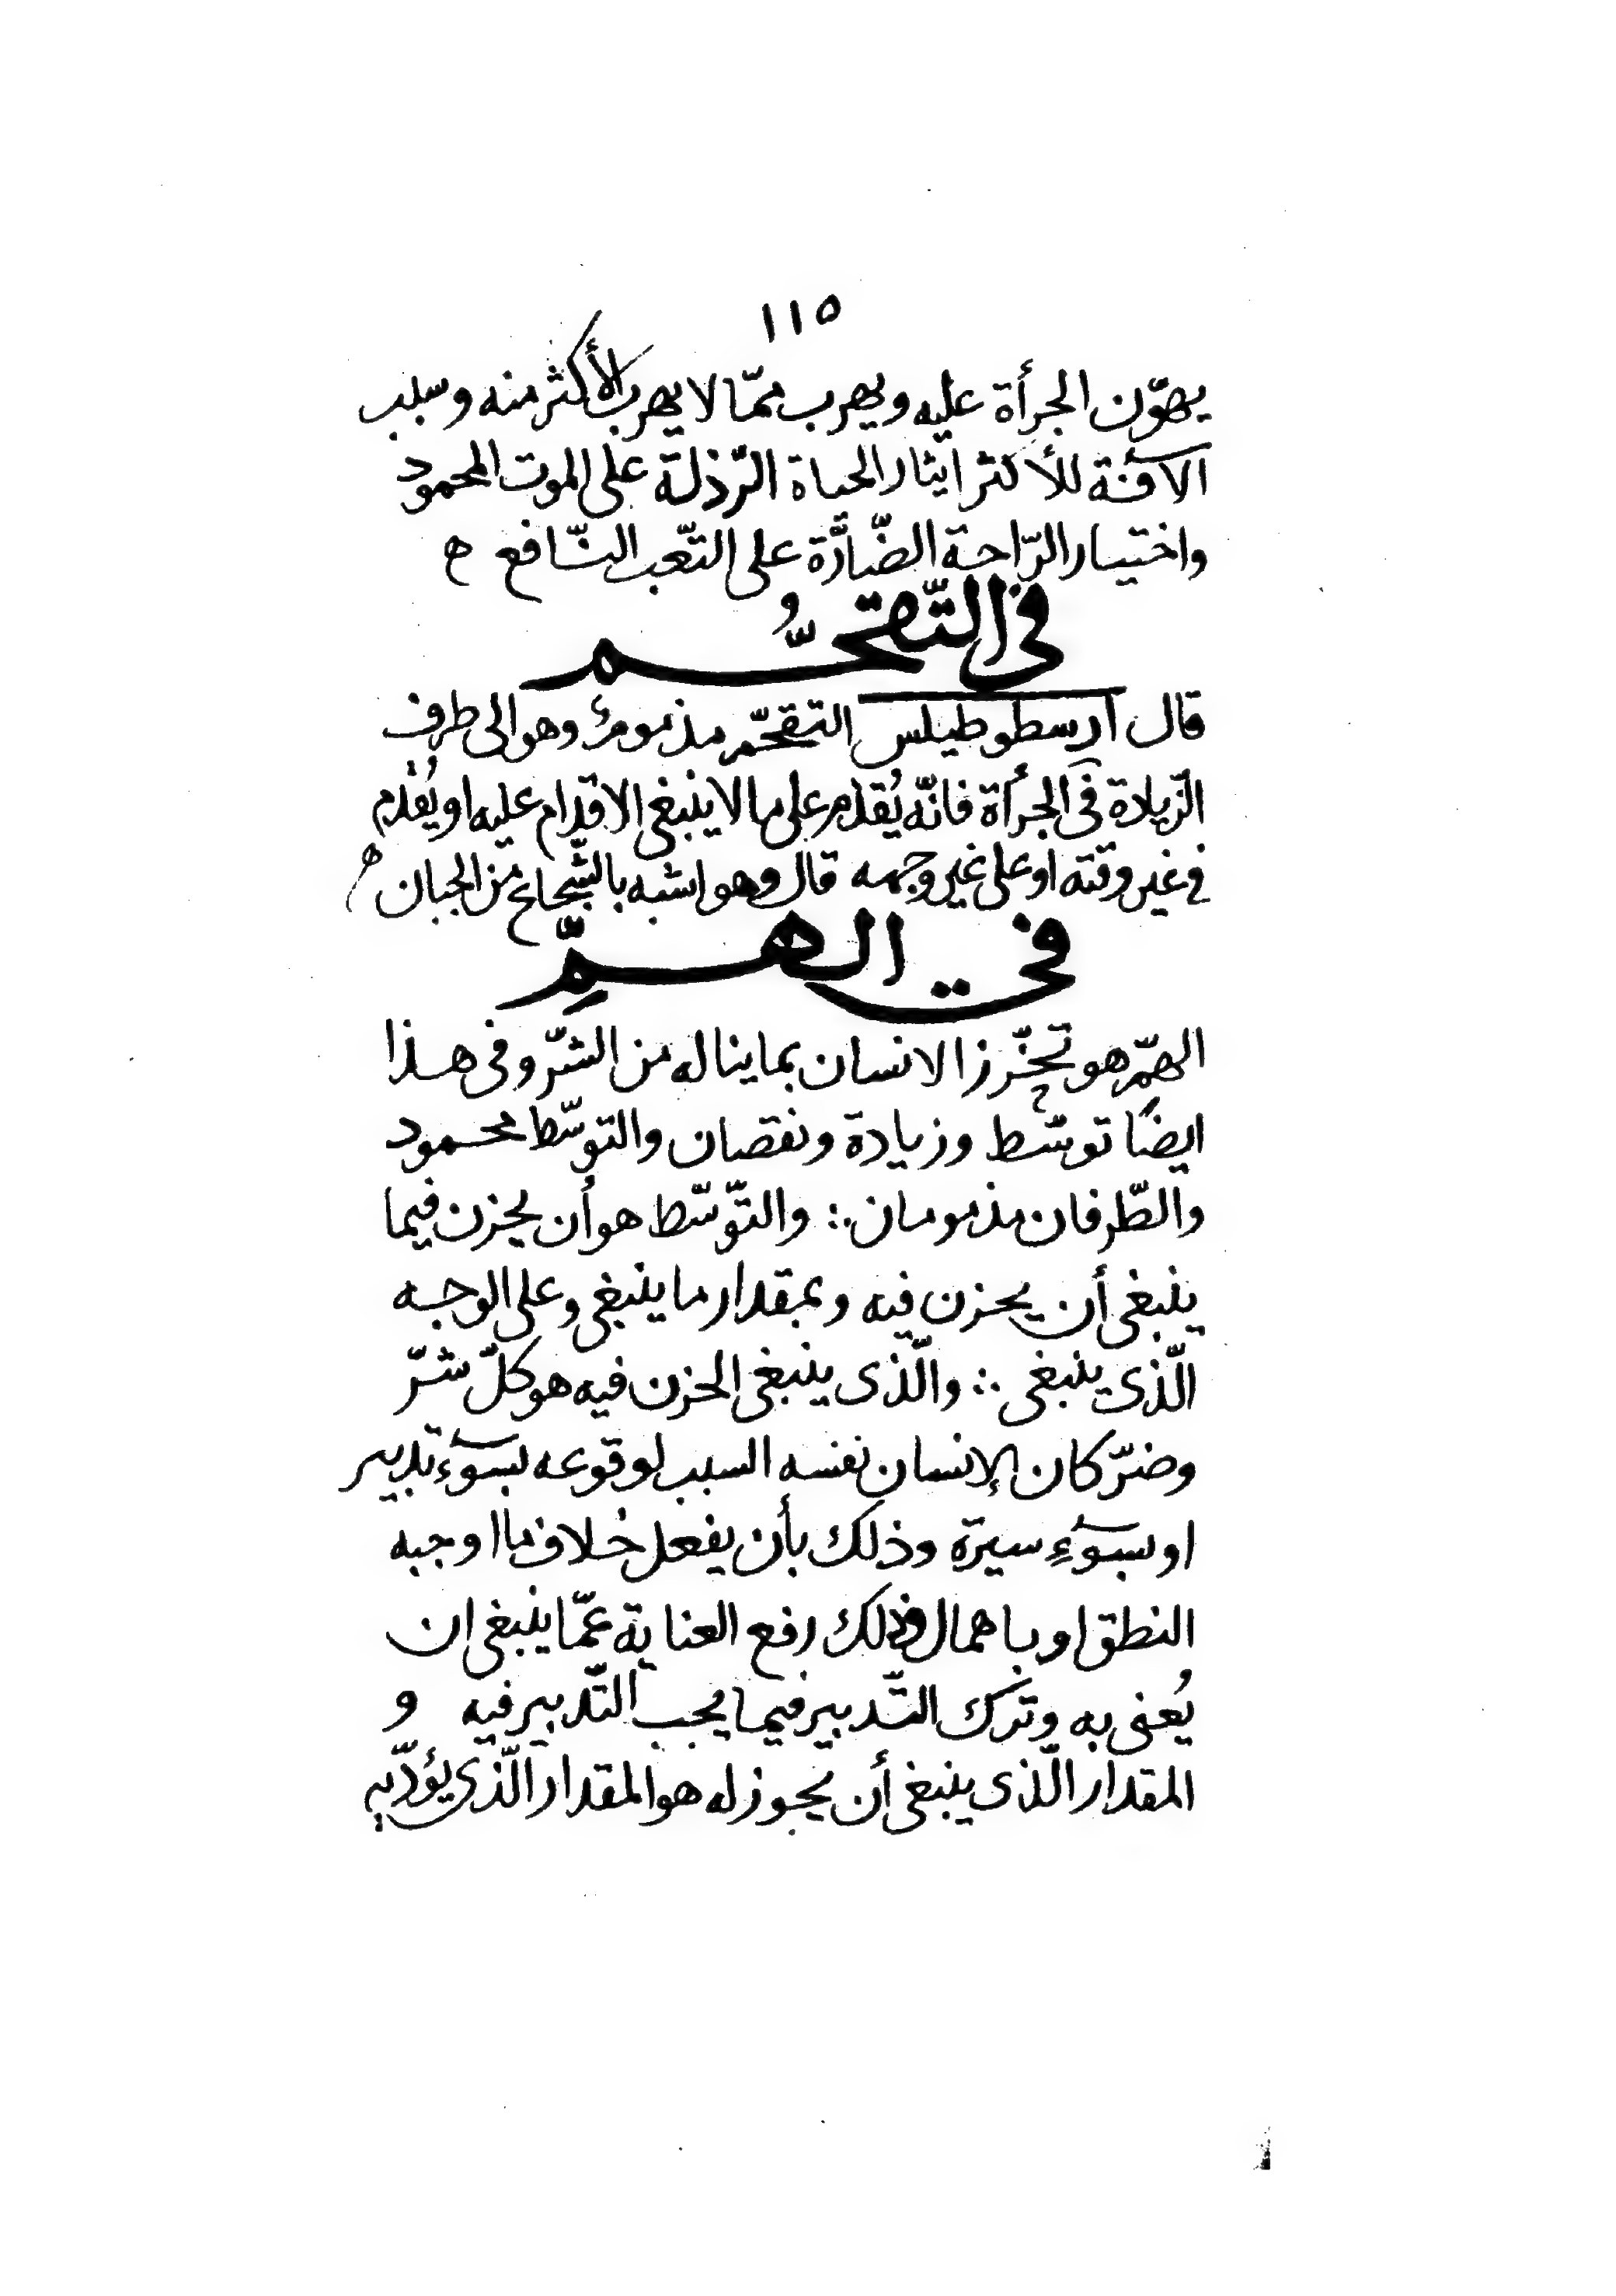 ١١٥
يهوّن الجرأة عليه ويهرب ممّا لا يهرب الأكثر منه وسبب
الآفة للأكثر ايثار الحياة الرّذلة على الموت المحمود
واختيار الرّاحة الضّارّة على التّعب النّافع ه
في التّقحُّم
قال ارسطوطيلس التقحّم مذمومٌ وهو الى طرف
الزّيادة في الجرأة فانّه يُقدم على ما لا ينبغي الاقدام عليه او يُقدم
في غير وقته او على غير وجهه قال وهو اشبه بالشّجاع من الجبان ه
في الهمِّ
الهمّ هو تحرّز الانسان بما يناله من الشّرّ وفى هذا
ايضًا توسّط وزيادة ونقصان والتوسّط محمود
والطّرفان مذمومان ∴ والتّوسّط هو أن يحزن فيما
ينبغي أن يحزن فيه وبمقدار ما ينبغي وعلى الوجه
الّذى ينبغي ∴ والّذى ينبغي الحزن فيه هو كلّ شرّ
وضرّ كان الإنسان نفسه السبب لوقوعه بسوٓءِ تدبير
او بسوٓءِ سيرة وذلك بأن يفعل خلاف ما اوجبه
النطق او باهمال وذلك رفع العناية عمّا ينبغي ان
يُعنى به وترك التّدبير فيما يجب التّدبير فيه و
المقدار الّذى ينبغي أن يجوز له هو المقدار الّذى يؤدّيه